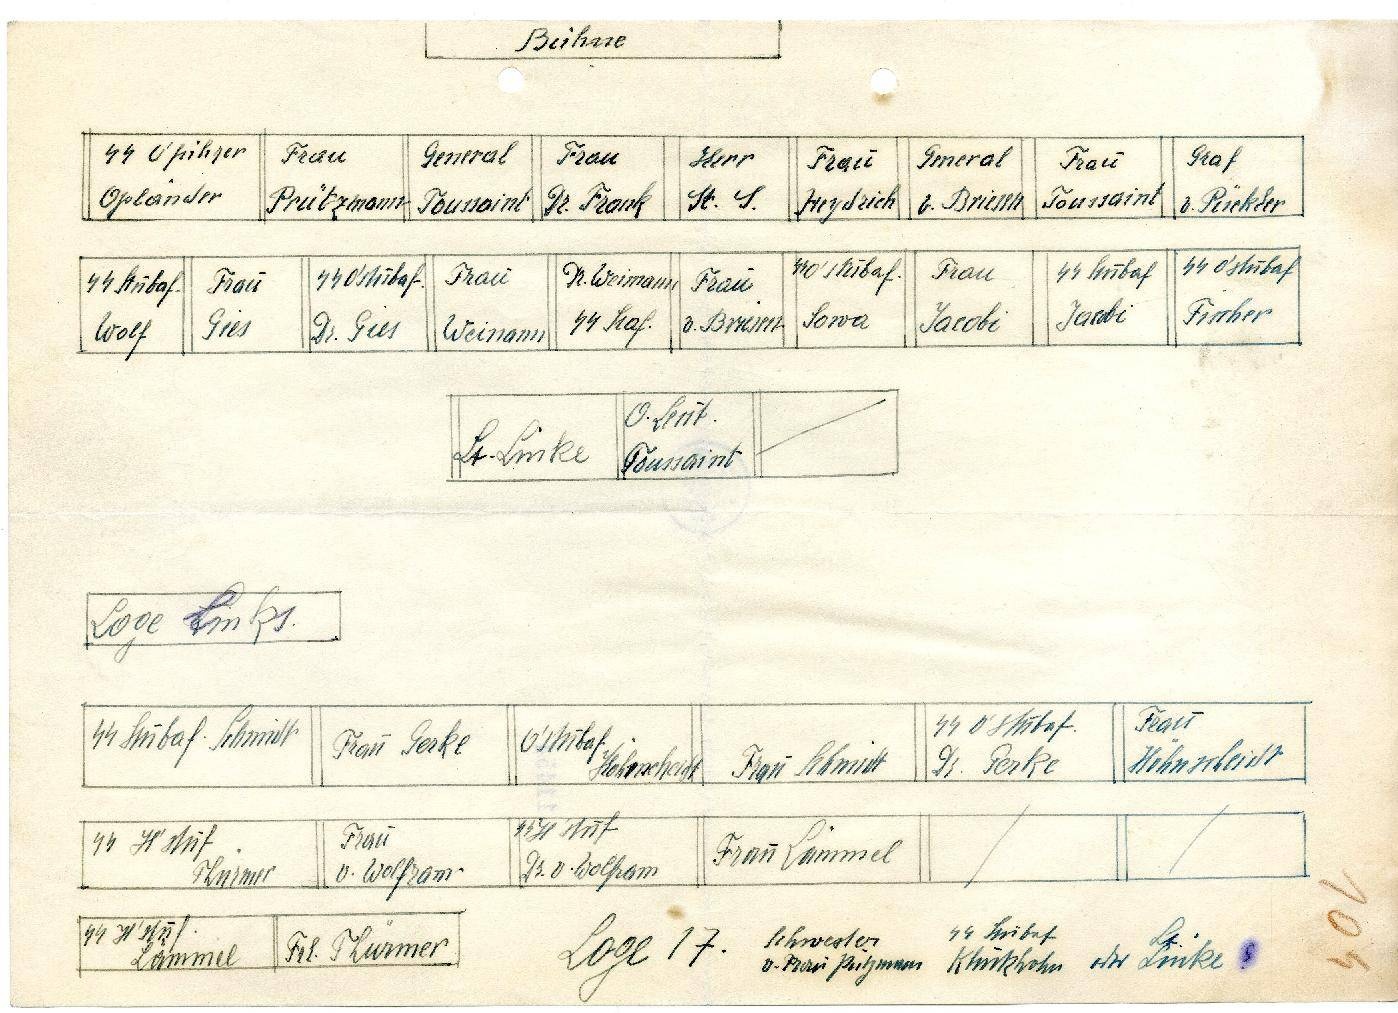 Bühne
SS O'führer Opländer
Frau Prützmann
General Toussaint
Frau Dr. Frank
Herr St. S.
Frau Heydrich
General v. Briesen
Frau Toussaint
Graf v. Pückler
SS Stubaf. Wolf
Frau Gies
SS O'Stubaf. Dr. Gies
Frau Weinann
Dr. Weimann SS Staf.
Frau v. Briesen
SS O'Stubaf. Sowa
Frau Jacobi
SS Stubaf Jacobi
SS O'Stubaf Fischer
Lt. Linke
O. Leut. Toussaint
Loge Links.
SS Stubaf. Schmidt
Frau Gerke
O'Stubaf. Höhnscheidt
Frau Schmidt
SS O'Stubaf. Dr. Gerke
Frau Höhnscheidt
SS H'Stuf Thürmer
Frau v. Wolfram
SS H'Stuf Dr. v. Wolfram
Frau Lämmel
SS H'Stuf. Lämmel
Frl. Thürmer
Loge 17.
Schwester v. Frau
SS Stubaf Klukhohn
oder
Lt. Linke
104